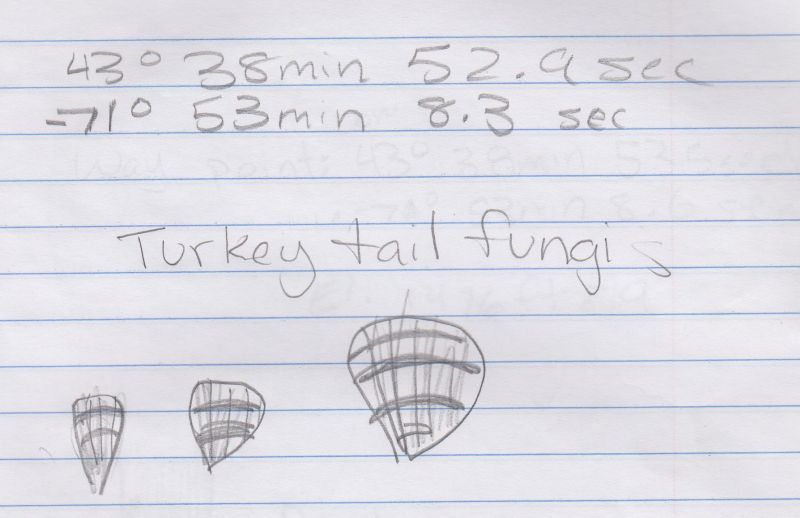 43° 38min 52.9 sec
-71° 53min 8.3 sec
Turkey tail fungi